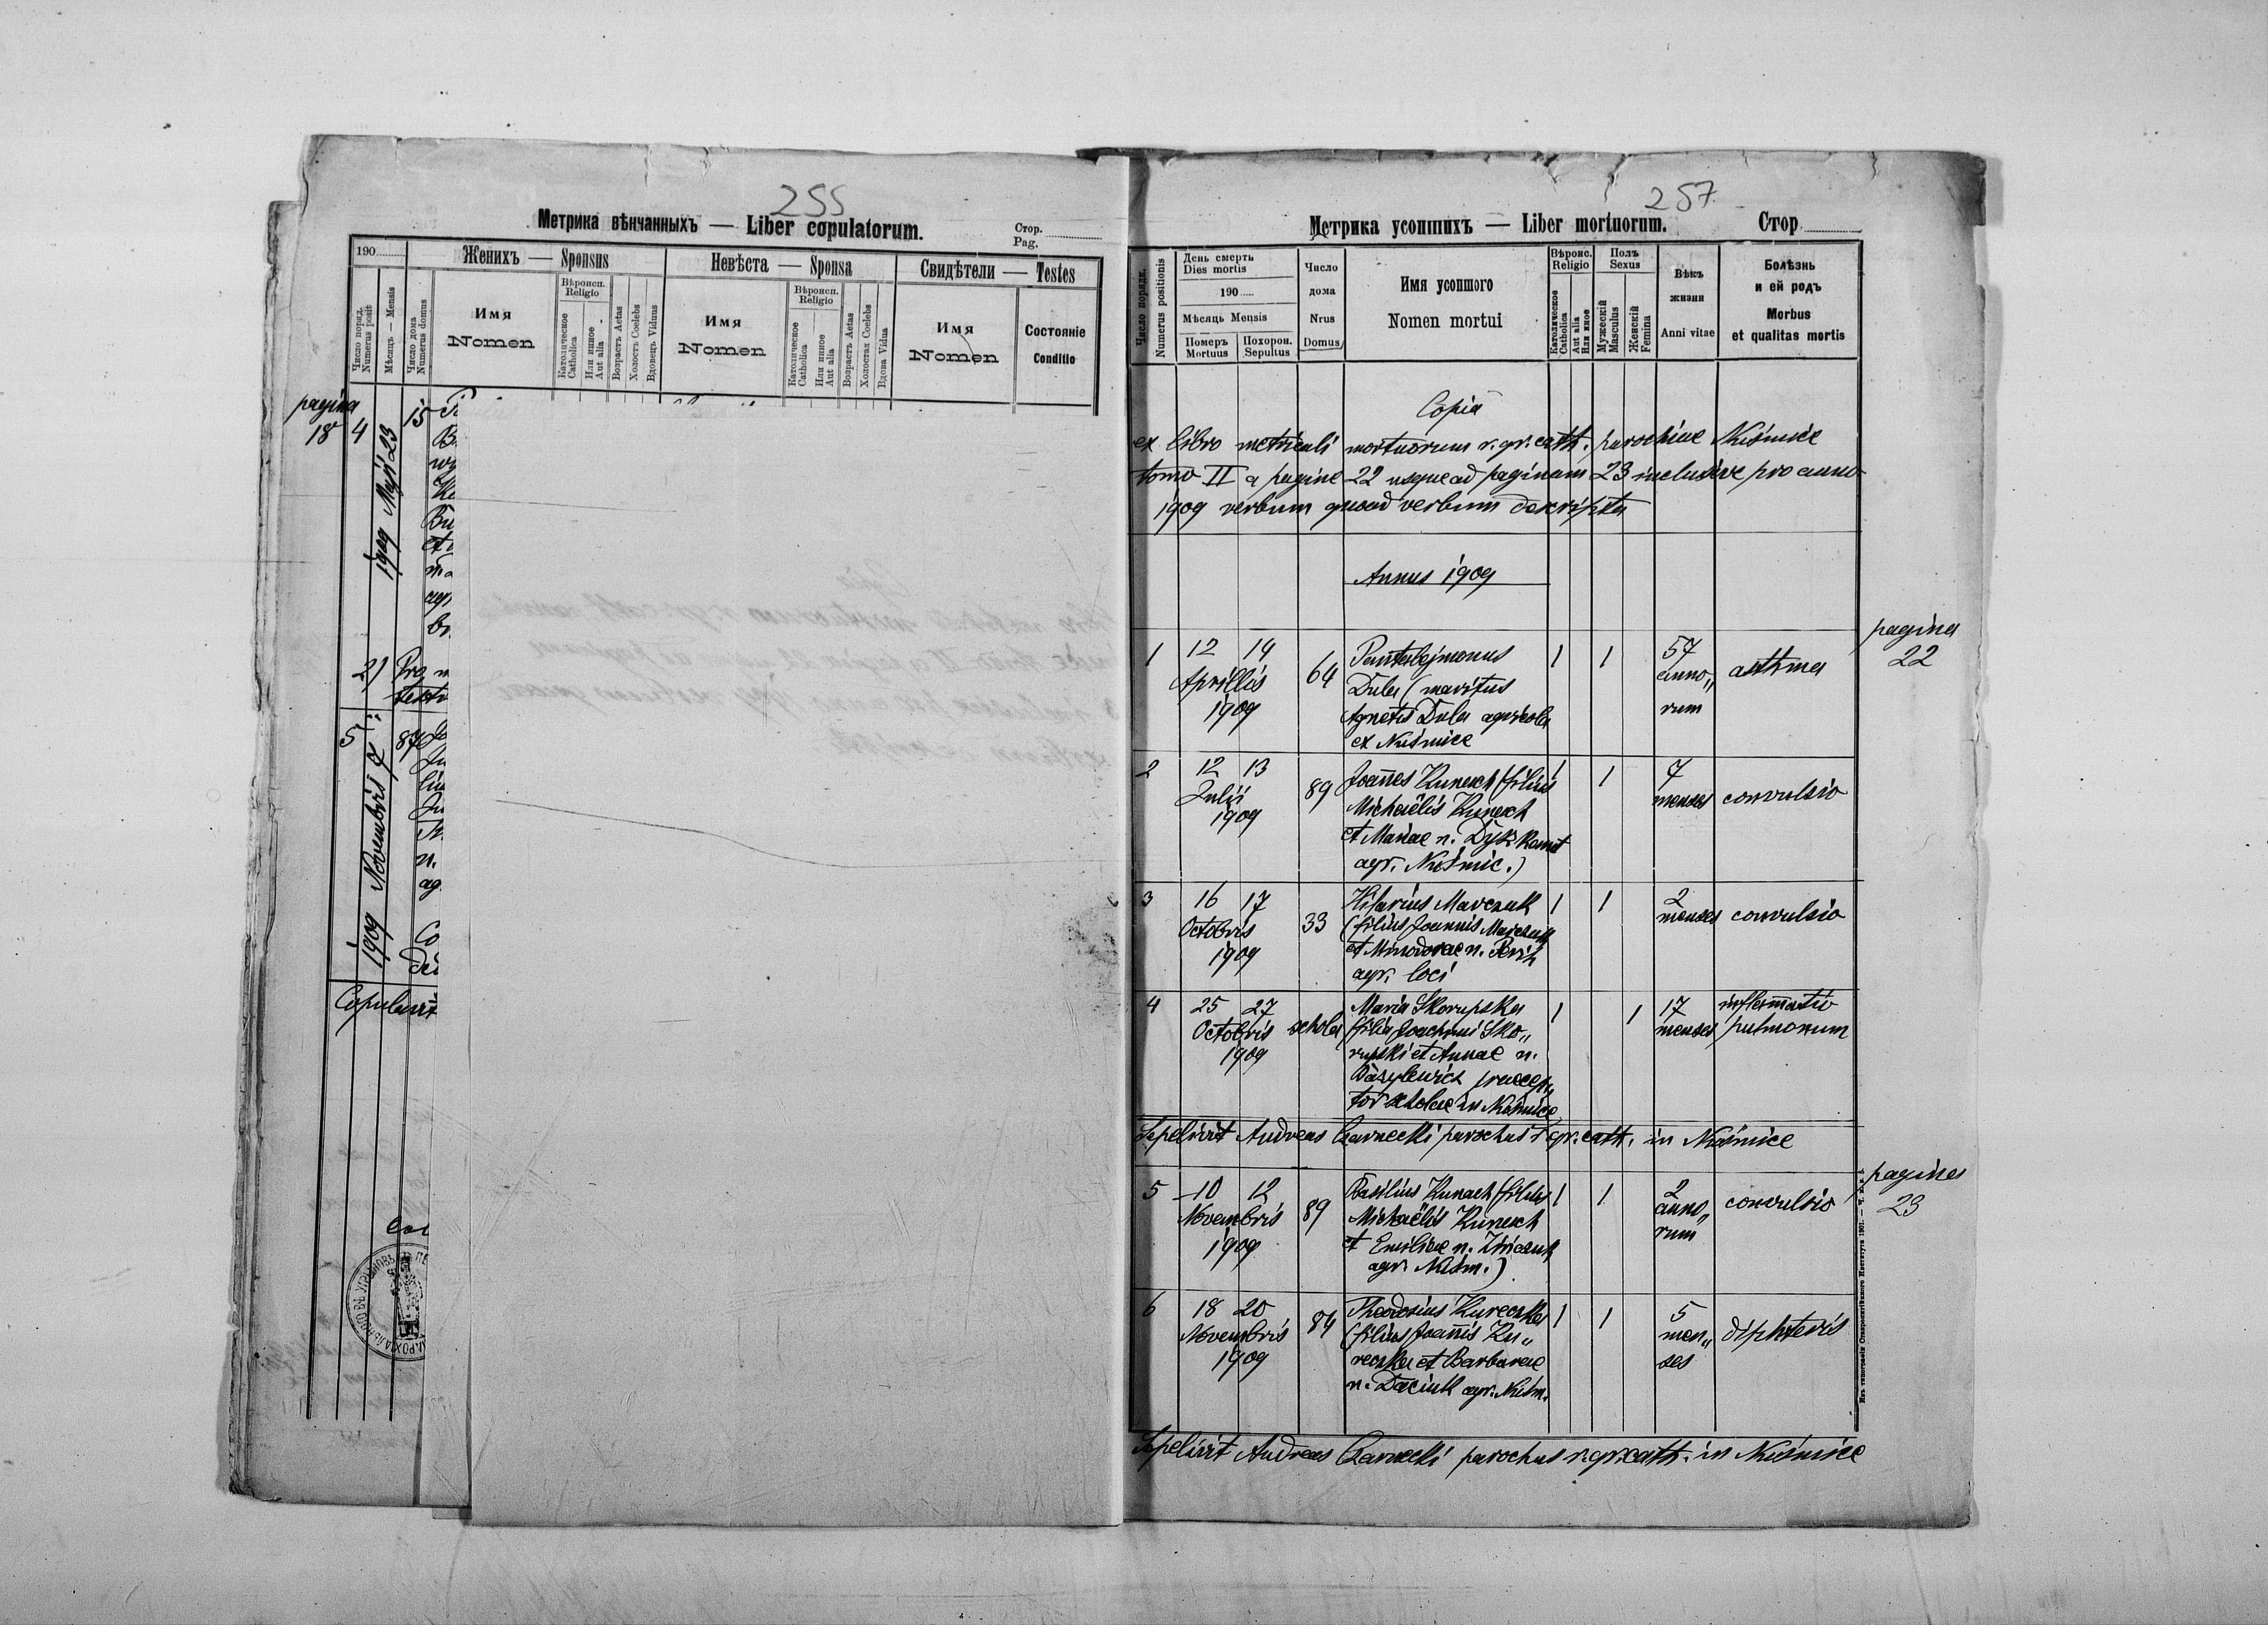 255
Метрика вѣнчанныхъ — Liber copulatorum.
Стор.
Pag.
190
Женихъ — Sponsus
Невѣста — Sponsa
Свидѣтели — Testes
Число поряд.
Numerus posit
Мѣсяць — Mensis
Число дома
Numerus domus
Имя
Nomen
Вѣроисп.
Religio
Католическое
Catholica
Или иное
Aut alia
Возрастъ Aetas
Холостъ Coelebs
Вдовецъ Viduus
Имя
Nomen
Вѣроисп.
Religio
Католическое
Catholica
Или иное
Aut alia
Возрастъ Aetas
Холостая Coelebs
Вдова Vidua
Имя
Nomen
Состояніе
Conditio
pagina
18
4
1909 Maji 23
15
B.
Bu
agr
br.
2)
testi
5
1909 Novembris 7
87
n.
ag
Co
Copulavit
257
Метрика усопшихъ — Liber mortuorum.
Стор
Число порядк.
Numerus positionis
День смерть
Dies mortis
190
Мѣсяць Mensis
Померъ
Mortuus
Похорон.
Sepultus
Число
дома
Nrus
Domus
Имя усопшого
Nomen mortui
Вѣроис.
Religio
Католическое
Catholica
Aut alia
Или иное
Полъ
Sexus
Мужескій
Masculus
Женскій
Femina
Вѣкъ
жизни
Anni vitae
Болѣзнь
и ей родъ
Morbus
et qualitas mortis
Copia
ex libro metricali mortuorum r. gr. cath. parochiae Nuśmice
tomo II a pagine 22 usque ad paginam 23 inclusive pro anno
1909 verbum quoad verbum descripta
Annus 1909
pagina
22
1 12 14 Pantalejmonus 1 1 57
Aprillis 64 Duba (maritus anno„ asthma
1909 Agnetis Duba agricola rum
ex Nuśmice
2 12 13 Joannes Kunach (filius 1 1 7
Julii 89 Michaëlis Kunach menses convulsio
1909 et Mariae n. Dyk
agr. Nuśmic.)
3 16 17 Hilarius Marczuk 1 1 2
Octobris 33 (filius Joannis Marczuk menses convulsio
1909 et Minodorae n.
agr. loci
4 25 27 Maria Skorupska 1 1 17 inflammatio
Octobris schola (filia Joachimi Sko„ menses pulmonum
1909 rupski et Annae n.
Bazylewicz praecep„
tor scholae in Nuśmice
Sepelivit Andreas Czarnecki parochus r. gr. cath. in Nuśmice
pagina
23
5 10 12 Basilius Kunach (filius 1 1 2
Novembris 89 Michaëlis Kunach anno„ convulsio
1909 et Emiliae n. rum
agr. Nuśm.)
6 18 20 Theodosius Kureczka 1 1 5
Novembris 84 (filius Joannis Ku„ men„ diphteris
1909 reczka et Barbarae ses
n. Daciuk agr. Nuśm.
Sepelivit Andreas Czarnecki parochus r. gr. cath. in Nuśmice